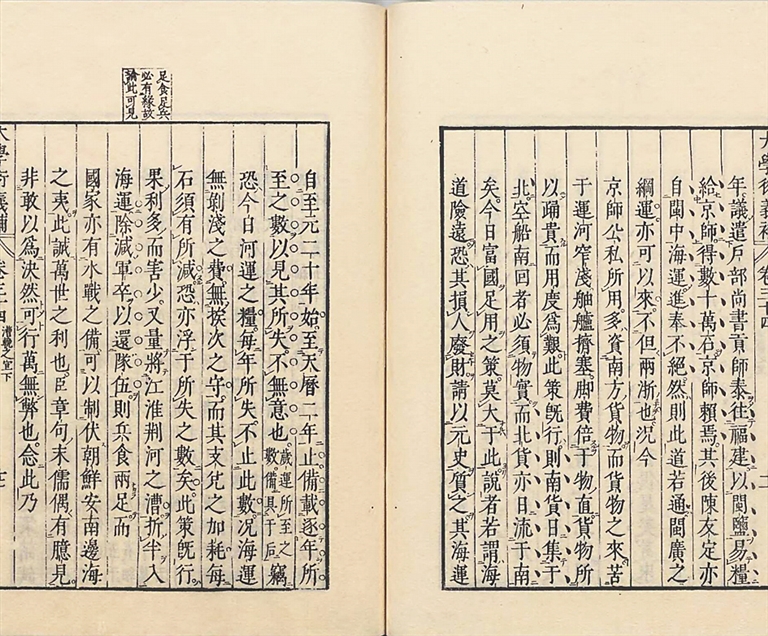 大學衍義補 卷三十四
年議遣戶部尚書貢師泰往福建以閩鹽易糧
給京師得數十萬石京師賴焉其後陳友定亦
自閩中海運進奉不絕然則此道若通閩廣之
綱運亦可以來不但兩浙也况今
京師公私所用多資南方貨物而貨物之來苦
于運河窄淺舳艫擠塞脚費倍于物直貨物所
以踊貴而用度爲艱此策旣行則南貨日集于
北空船南回者必須物實而北貨亦日流于南
矣今日富國足用之策莫大于此說者若謂海
道險遠恐其損人廢財請以元史質之其海運
足食足兵
必有緣故
論此可見
自至元二十年始至天曆二年止備載逐年所
至之數以見其所失不無意也歲運所至之數備具于后竊
恐今日河運之糧每年所失不止此數况海運
無剝淺之費無挨次之守而其支兊之加耗每
石須有所減恐亦浮于所失之數矣此策旣行
果利多而害少又量將江淮荆河之漕折半入
海運除減軍卒以還隊伍則兵食兩足而
國家亦有水戰之備可以制伏朝鮮安南邊海
之夷此誠萬世之利也臣章句末儒偶有臆見
非敢以爲決然可行萬無弊也念此乃
大學衍義補 卷三十四 漕輓之宜下